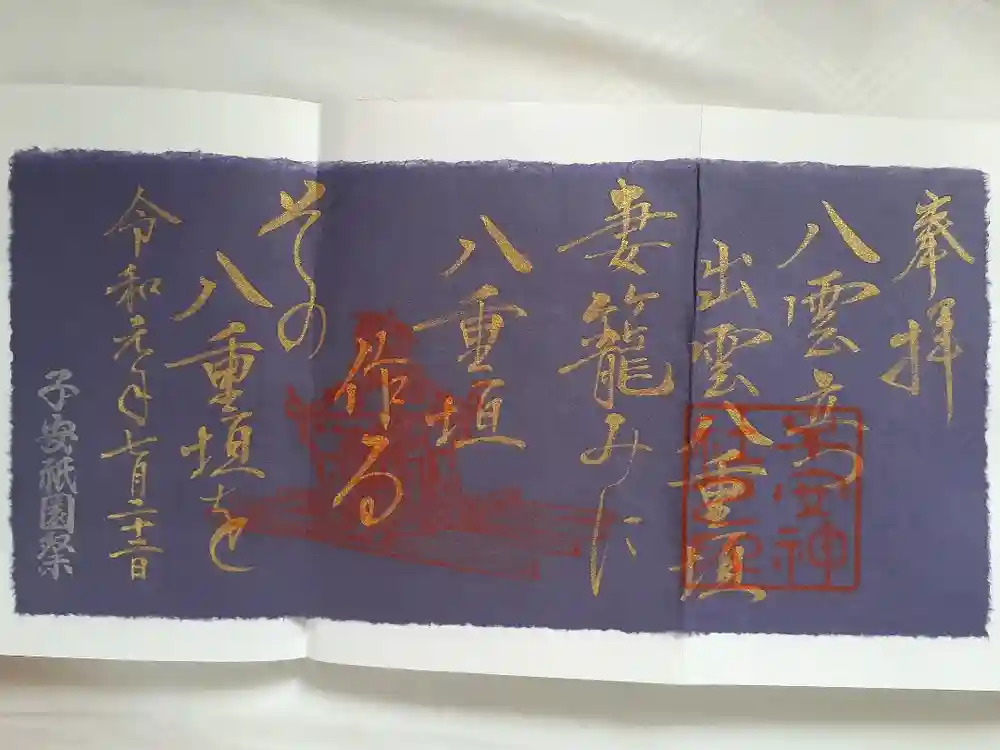 奉拝
八雲立つ
出雲八重垣
妻籠みに
八重垣
作る
その
八重垣を
令和元年七月二十三日
子安祇園祭
子安神